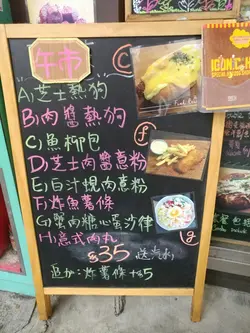 午市
A)芝士熱狗
B)肉醬熱狗
C)魚柳包
D)芝士肉醬意粉
E)白汁燴肉意粉
F)炸魚薯條
G)蟹肉糖心蛋沙律
H)意式肉丸
$35 送汽水
追加:炸薯條+$5
C
f
g